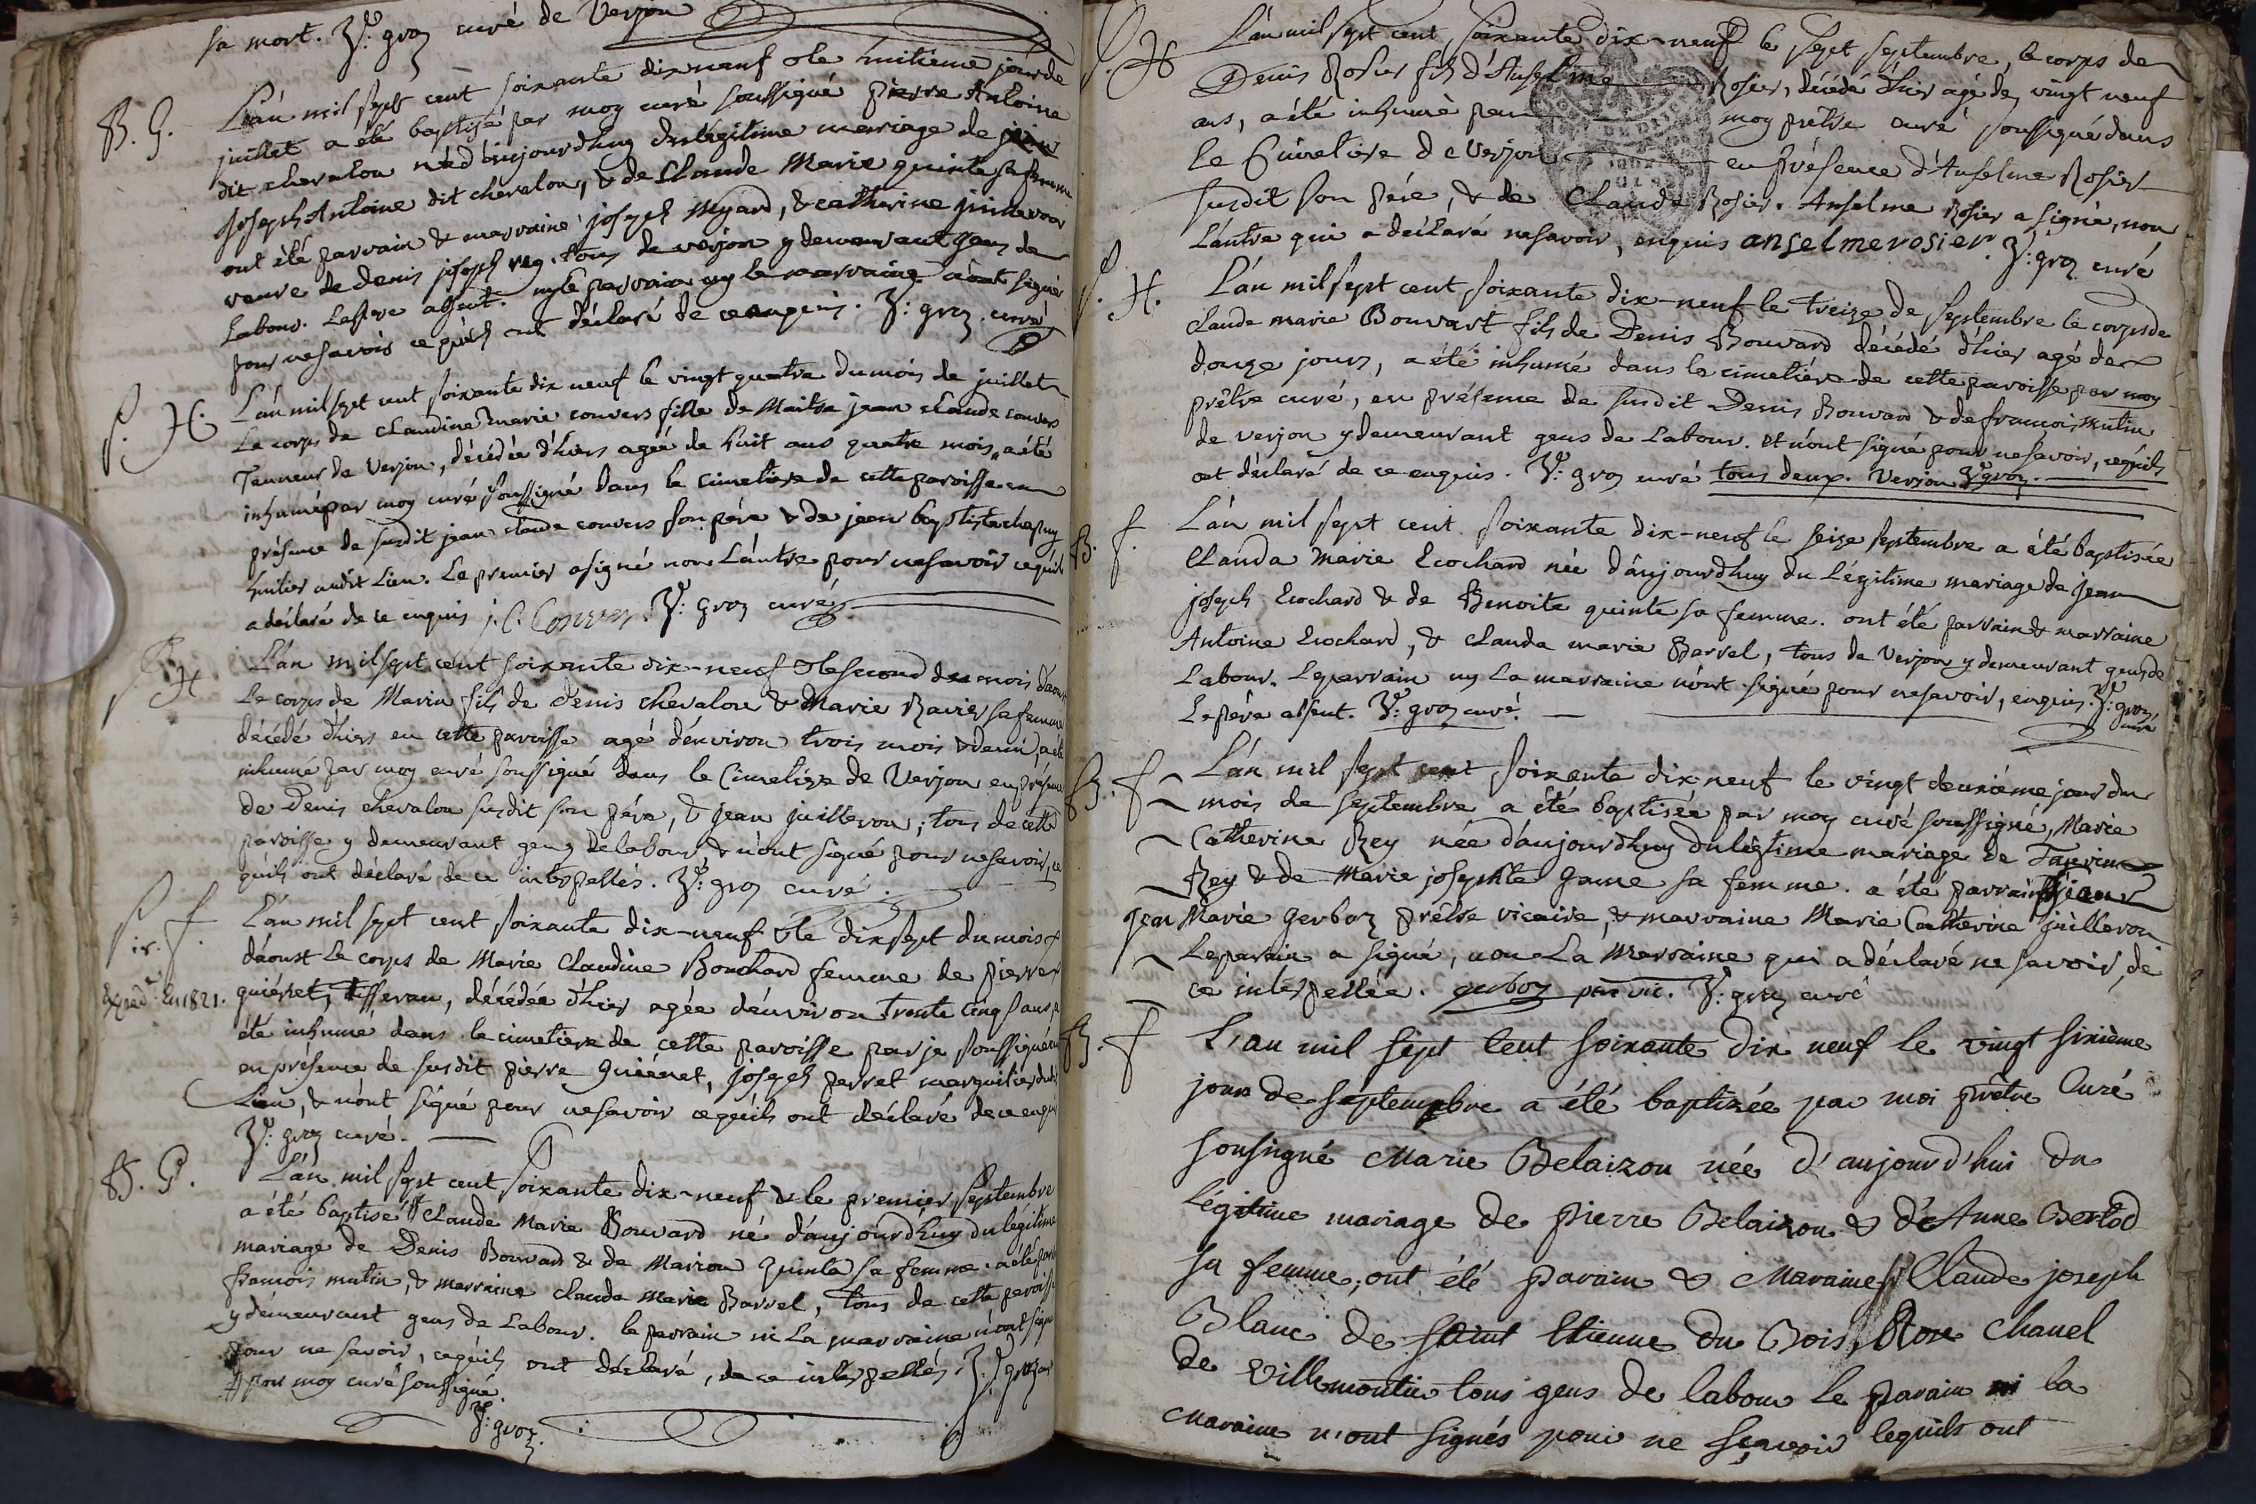 sa mort. J: groz curé de Verjon
B. G.
L'an mil sept cent soixante dix neuf & le huitieme jour de
juillet a été baptisé par moy curé soussigné pierre Antoine
dit chevalon né d'aujourdhuy du légitime mariage de
joseph Antoine dit chevalon, & de Claude Marie quinte sa femme
ont été parrain & marraine joseph Myard, & catherine juilleron
veuve de denis joseph rey, tous de verjon y demeurant gens de
labour. Le pere absent. ny le parrain ny la marraine n'ont signé
pour ne savoir ce qu'ils ont déclaré de ce enquis. J: groz curé
S. H.
L'an mil sept cent soixante dix neuf le vingt quatre du mois de juillet
Le corps de claudine marie convers fille de Maitre jean claude convers
Tanneur de Verjon, décédée d'hiers agée de huit ans quatre mois, a été
inhumé par moy curé soussigné dans le cimetiere de cette paroisse en
présence de susdit jean claude convers son père & de jean baptiste chapuy
huilier audit Lieu. Le premier a signé non L'autre pour ne savoir ce qu'il
a déclaré de ce enquis j. C. Convers. J: groz curé
S. H
L'an mil sept cent soixante dix-neuf & le second du mois d'aout
Le corps de Marin fils de Denis chevalon & Marie Ravier sa femme
décédé d'hiers en cette paroisse agé d'environ trois mois & demi, a été
inhumé par moy curé soussigné dans le Cimetiere de Verjon en présence
de Denis chevalon susdit son père, & jean juilleron; tous de cette
paroisse y demeurant gens de labour & n'ont signé pour ne savoir, ce
qu'ils ont déclaré de ce interpellés. J: groz curé.
S. f.
L'an mil sept cent soixante dix-neuf & le dix sept du mois
d'aoust Le corps de Marie Claudine Bouchard femme de pierre
Exped. En 1821.
quiénet, Tisseran, décédée d'hier agée d'environ trente cinq ans a
été inhumé dans le cimetiere de cette paroisse par je soussigné
en présence de susdit pierre Guiénet, joseph perret marguilier dudit
Lieu, & n'ont signé pour ne savoir ce qu'ils ont déclaré de ce enquis
J: groz curé.
B. G.
L'an mil sept cent soixante dix-neuf & le premier septembre
a été baptisé # Claude Marie Bouvard né d'aujourdhuy du légitime
mariage de Denis Bouvard & de Marion quinte sa femme. a été parrain
francois mutin, & marraine claude marie Barvel, tous de cette paroisse
y demeurant gens de Labour. le parrain ni La marraine n'ont signé
pour ne savoir, ce qu'ils ont déclaré, de ce interpellés. J: groz curé
# par moy curé soussigné.
J: groz.
S. H
L'an mil sept cent soixante dix-neuf le sept septembre, le corps de
Denis Rosier fils d'Anselme Rosier, décédé d'hier agé de vingt neuf
ans, a été inhumé par moy prêtre curé soussigné dans
le Cimetiere de Verjon en présence d'Anselme Rosier
susdit son père, & de Claude Rosier. Anselme Rosier a signé, non
L'autre qui a déclaré ne savoir, enquis anselme rosier. J: groz curé
S. H.
L'an mil sept cent soixante dix-neuf le treize de septembre le corps de
claude marie Bouvart fils de Denis Bouvard décédé d'hier agé de
douze jours, a été inhumé dans le cimetière de cette paroisse par moy
prêtre curé, en présence de susdit Denis Bouvard & de francois mutin
de verjon y demeurant gens de Labour. et n'ont signé pour ne savoir, ce qu'ils
ont déclaré de ce enquis. J: groz curé tous deux. Verjon J: groz.
B. f.
L'an mil sept cent soixante dix-neuf le seize septembre a été baptisée
Clauda Marie Ecochard née d'aujourdhuy du Légitime mariage de jean
joseph Ecochard & de Benoite quinte sa femme. ont été parrain & marraine
Antoine Ecochard, & Clauda marie Barvel, tous de Verjon y demeurant gens de
Labour. Le parrain ny La marraine n'ont signé pour ne savoir, enquis. J: groz
Le père absent. J: groz curé. curé
B. f
L'an mil sept cent soixante dix neuf le vingt deuxième jour du
mois de septembre a été baptisée par moy curé soussigné, Marie
Catherine Rey née d'aujourdhuy du légitime mariage de Taurin
Rey & de Marie josephte Game sa femme. a été parrain jean
jean Marie gerboz prêtre vicaire, & marraine Marie Catherine juilleron
Le parrain a signé, non La Marraine qui a déclaré ne savoir, de
ce interpellée. gerboz ptre vic. J: groz curé
B. f
L'an mil sept Cent soixante dix neuf le vingt sixième
jour de septempbre a été baptisée par moi prêtre Curé
sousigné Marie Belaizon née d'aujourd'hui du
Légitime mariage de pierre Belaizon & d'Anne Bertod
sa femme, ont été parain & Maraine Claude joseph
Blanc de saint Etienne du Bois, & Rose Chanel
de Villemoutie tous gens de labour le parain ni la
Maraine n'ont signés pour ne sçavoir ce qu'ils ont